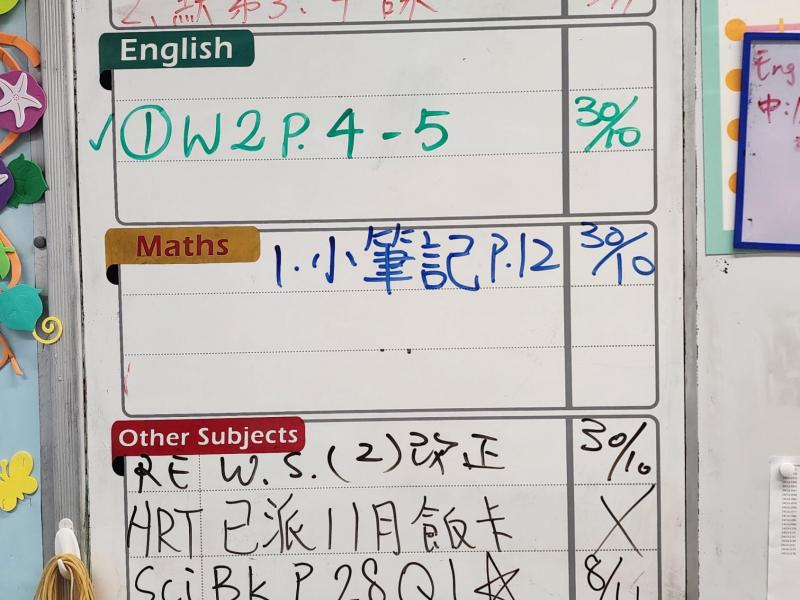 English
① W2 P. 4 - 5 30/10
Maths
1. 小筆記 P.12 30/10
Other Subjects
RE W.S. (2) 改正 30/10
HRT 已派11月飯卡 X
Sci BK P 28 Q1 ☆ 8/11
Eng
中: